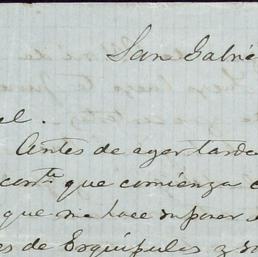 San Gabrie
el.
Antes de ayer tarde
conte que comienza
que me hace suponer
es de Esquipulas y